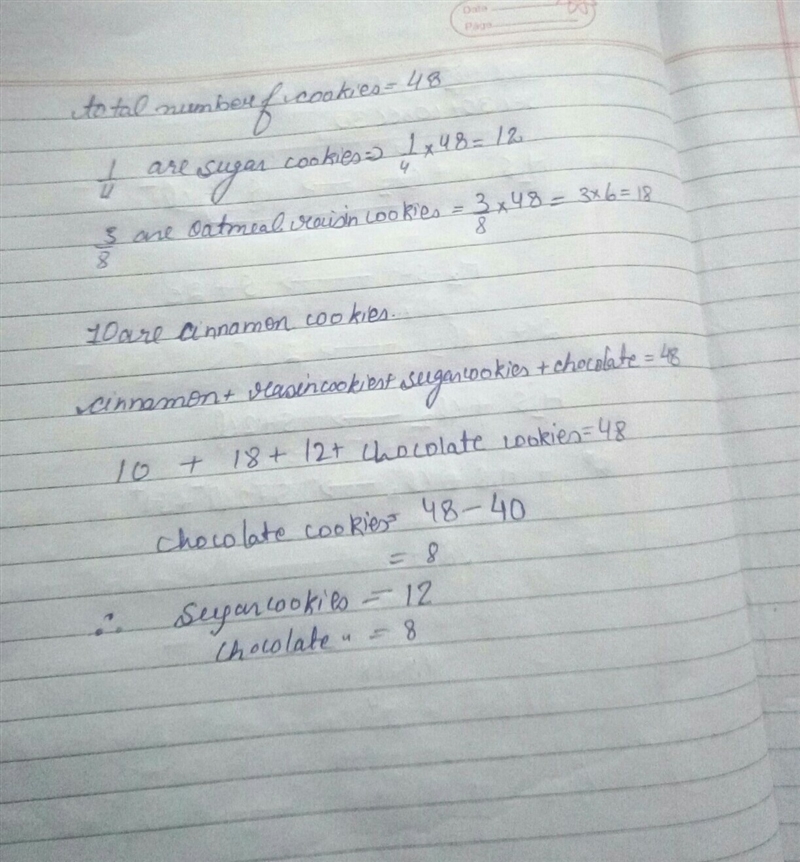 Date
Page
total number of cookies = 48
1/4 are sugar cookies => 1/4 × 48 = 12
3/8 are oatmeal raisin cookies = 3/8 × 48 = 3×6 = 18
10 are cinnamon cookies.
cinnamon + reasin cookies + sugar cookies + chocolate = 48
10 + 18 + 12 + chocolate cookies = 48
chocolate cookies = 48 - 40
= 8
∴ Sugar cookies = 12
chocolate " = 8